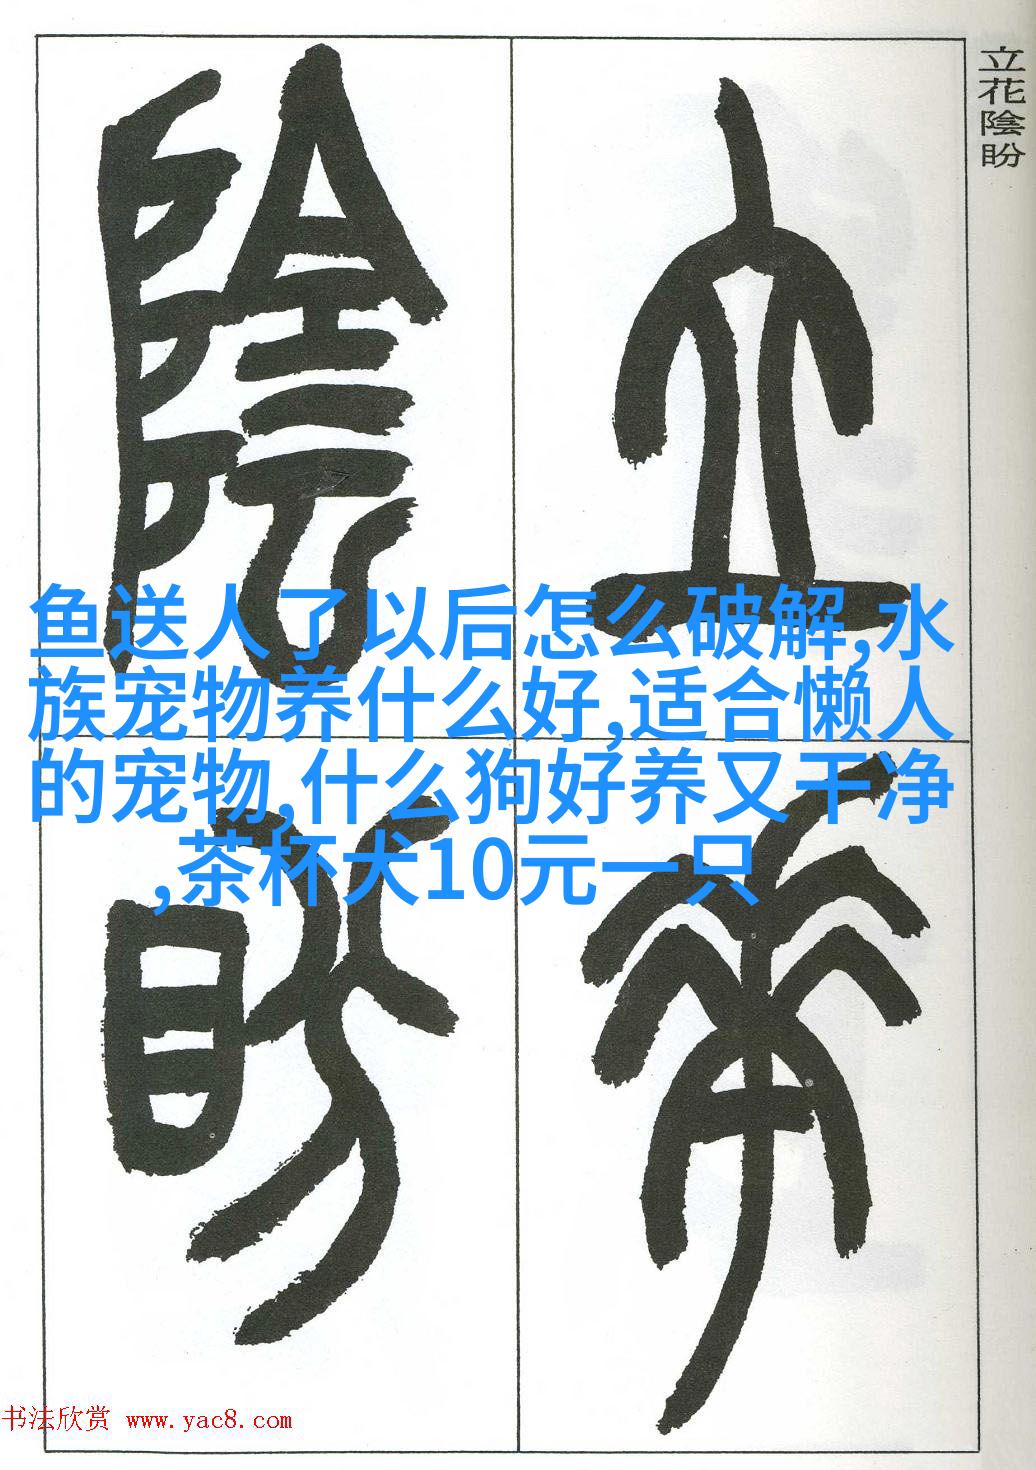 立花陰盼
立
陰
花
盼
鱼送人了以后怎么破解,水
族宠物养什么好,适合懒人
的宠物,什么狗好养又干净
,茶杯犬10元一只
书法欣赏 www.yac8.com